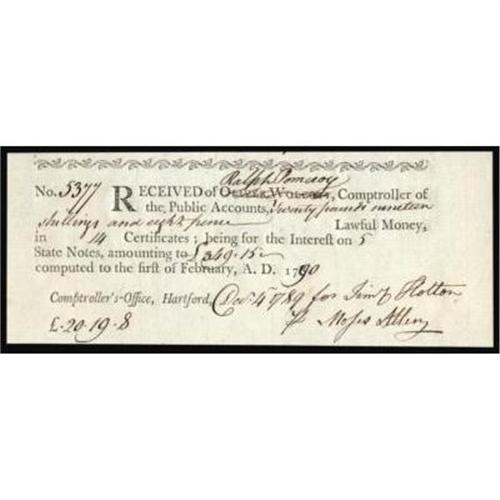 Ralph Pomeroy
No. 5377 RECEIVED of OLIVER WOLCOTT, Comptroller of
the Public Accounts, Twenty pounds nineteen
shillings and eight pence Lawful Money,
in 14 Certificates; being for the Interest on 5
State Notes, amounting to £349.15.
computed to the first of February, A. D. 1790
Comptroller's-Office, Hartford, Dec. 4 1789 for Timy Holton
£.20.19.8 Moses Allen